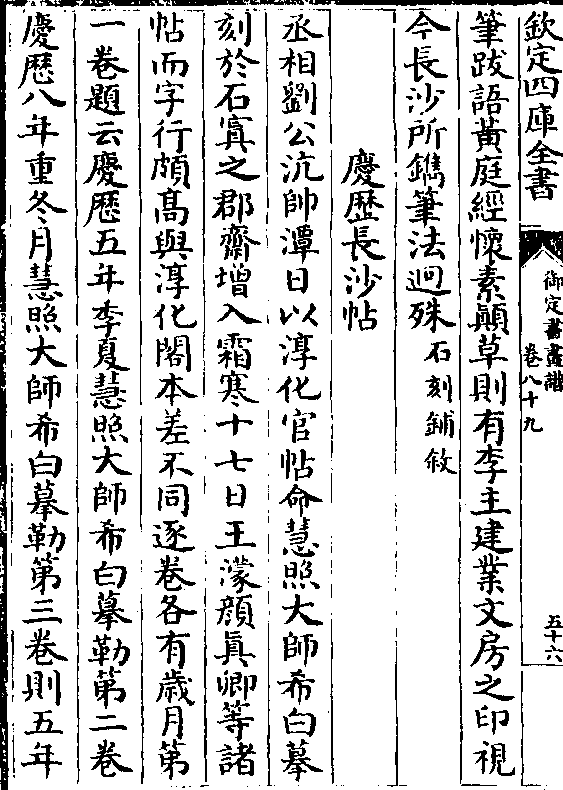 欽定四庫全書
御定書畫譜
卷八十九
五十六
筆跋語黃庭經懷素顛草則有李主建業文房之印視
今長沙所鐫筆法迥殊石刻鋪敘
慶歴長沙帖
丞相劉公沆帥潭日以淳化官帖命慧照大師希白摹
刻於石寘之郡齋增入霜寒十七日王濛顔真卿等諸
帖而字行頗髙與淳化閣本差不同逐卷各有歳月第
一卷題云慶歴五年季夏慧照大師希白摹勒第二卷
慶歴八年重冬月慧照大師希白摹勒第三卷則五年